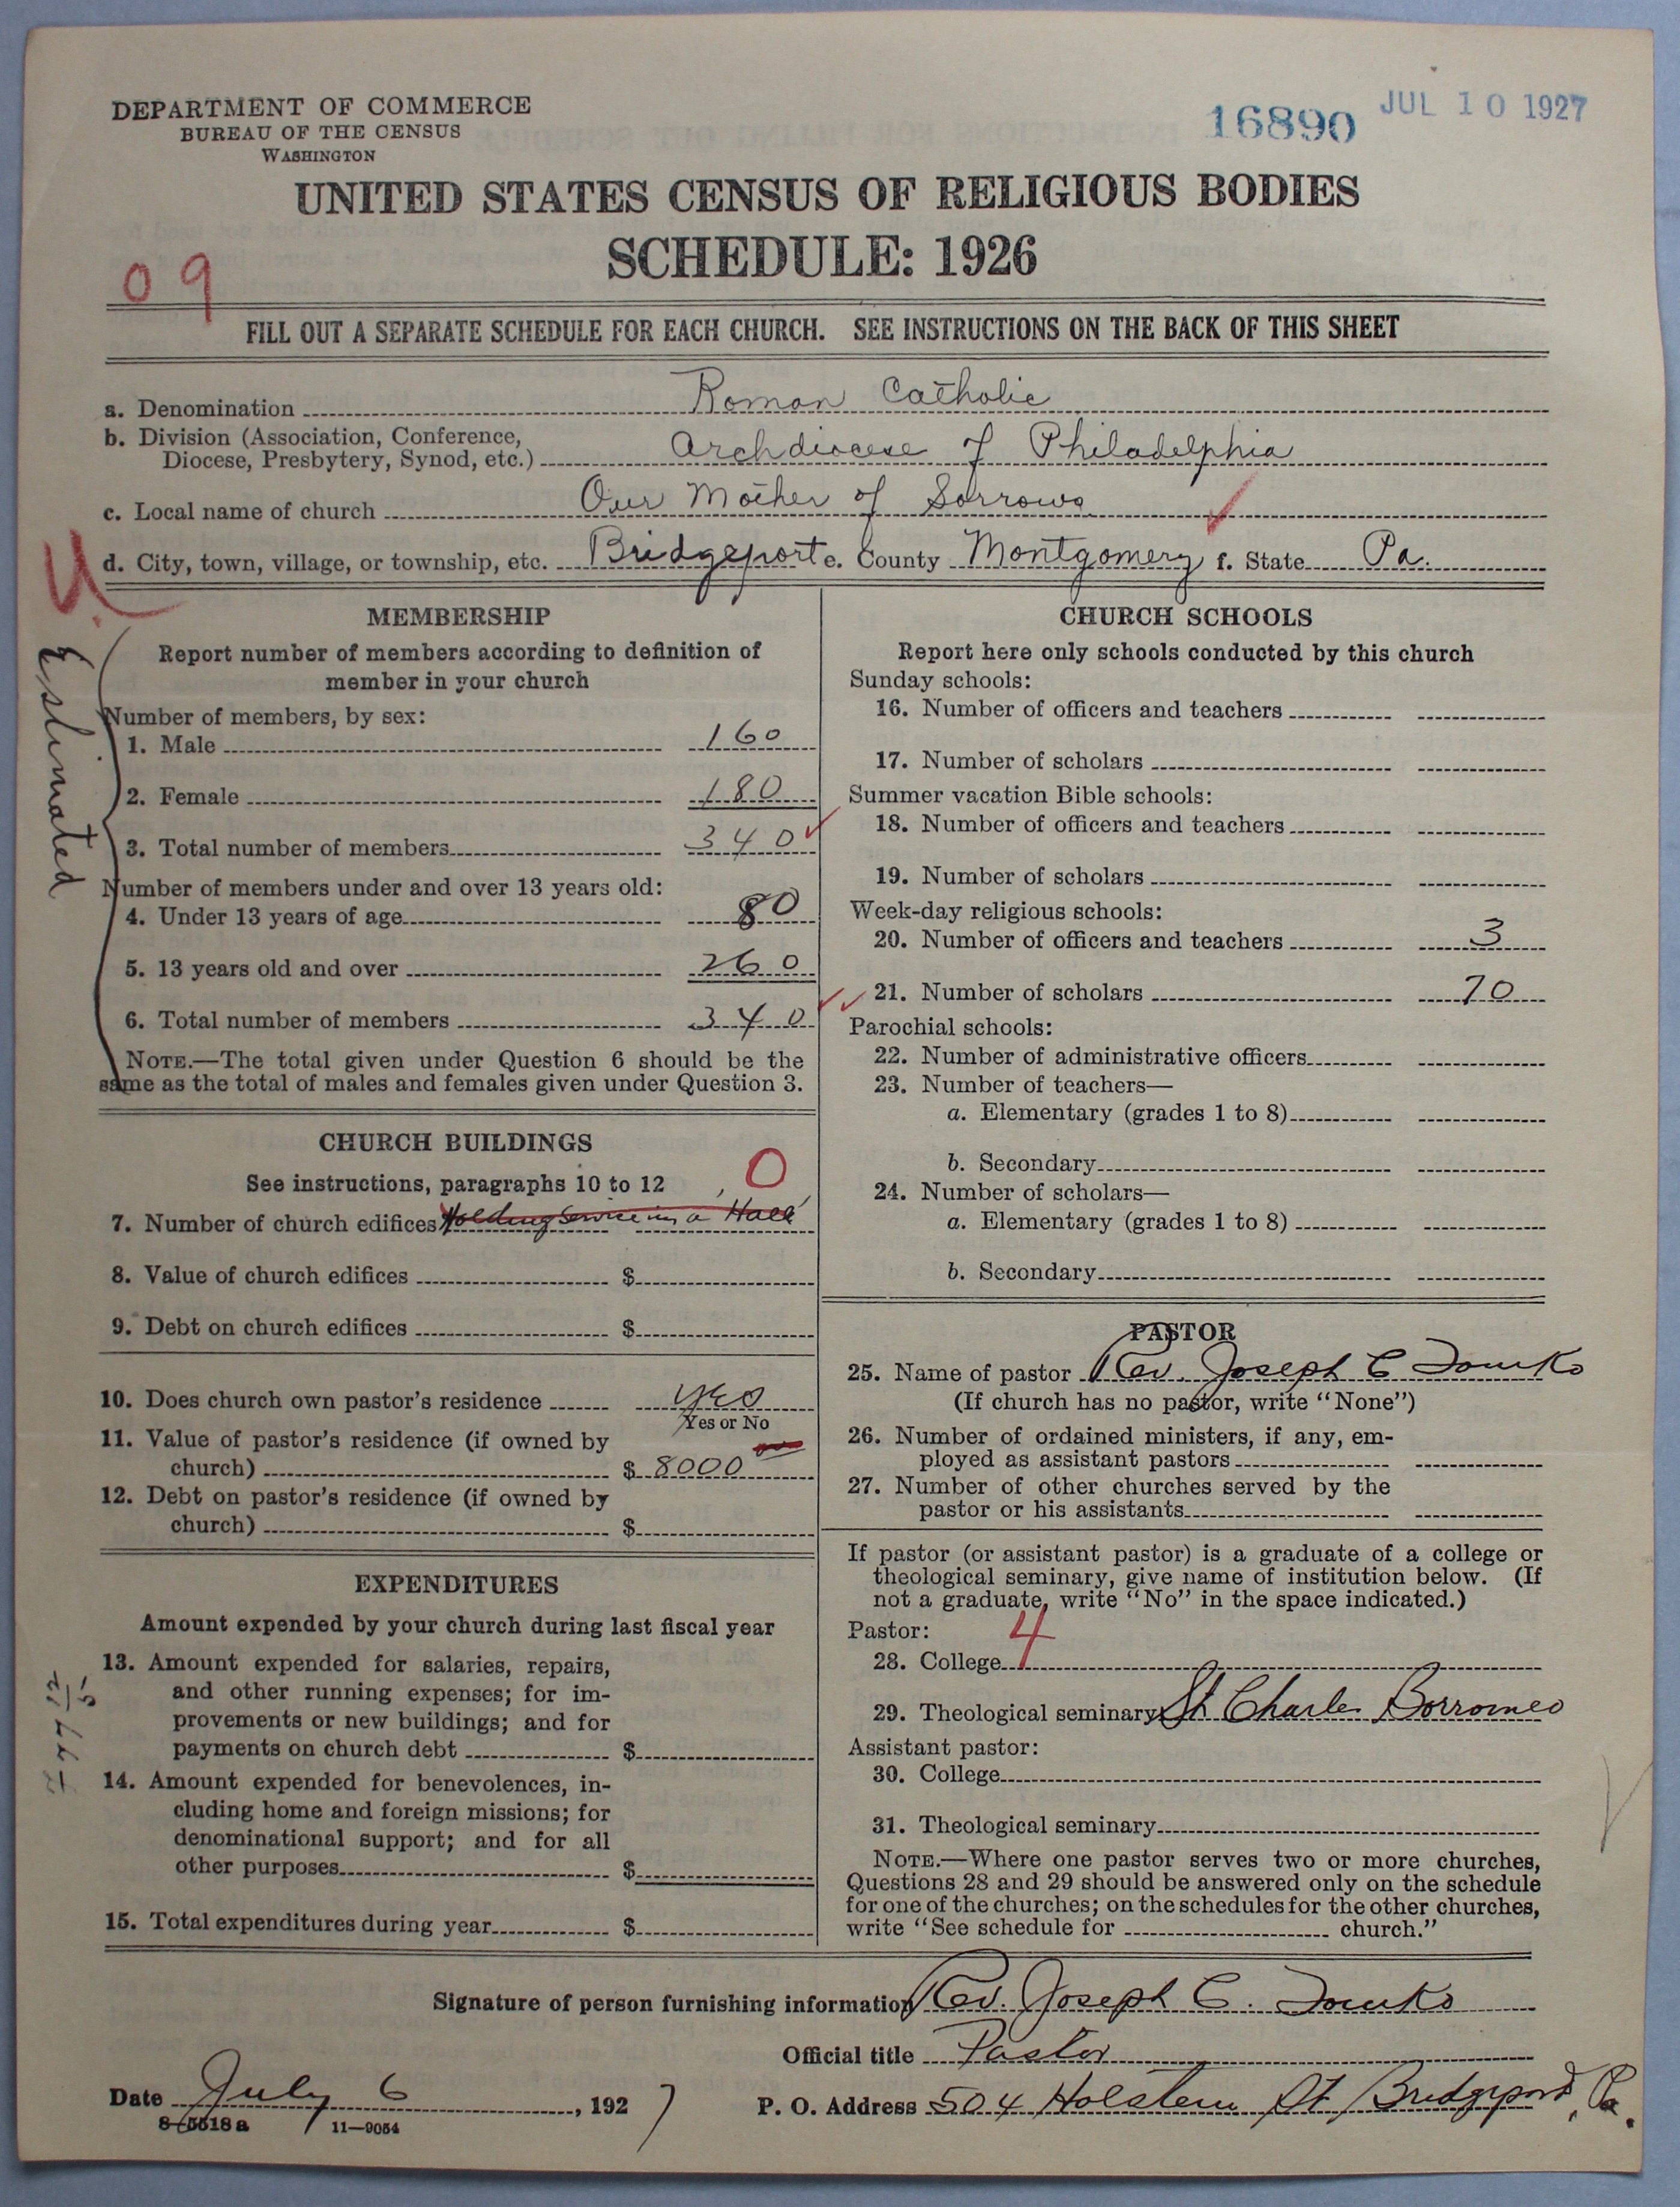 DEPARTMENT OF COMMERCE
BUREAU OF THE CENSUS
WASHINGTON
16890 JUL 10 1927
UNITED STATES CENSUS OF RELIGIOUS BODIES
SCHEDULE: 1926
09
FILL OUT A SEPARATE SCHEDULE FOR EACH CHURCH. SEE INSTRUCTIONS ON THE BACK OF THIS SHEET
a. Denomination Roman Catholic
b. Division (Association, Conference,
Diocese, Presbytery, Synod, etc.) Archdiocese of Philadelphia
c. Local name of church Our Mother of Sorrows
d. City, town, village, or township, etc. Bridgeport e. County Montgomery f. State Pa.
Estimated
MEMBERSHIP
Report number of members according to definition of
member in your church
Number of members, by sex:
1. Male 160
2. Female 180
3. Total number of members 340
Number of members under and over 13 years old:
4. Under 13 years of age 80
5. 13 years old and over 260
6. Total number of members 340
NOTE.—The total given under Question 6 should be the
same as the total of males and females given under Question 3.
CHURCH BUILDINGS
See instructions, paragraphs 10 to 12 0
7. Number of church edifices Holding Service in a Hall
8. Value of church edifices $
9. Debt on church edifices $
10. Does church own pastor's residence yes
Yes or No
11. Value of pastor's residence (if owned by
church) $ 8000
12. Debt on pastor's residence (if owned by
church) $
EXPENDITURES
Amount expended by your church during last fiscal year
13. Amount expended for salaries, repairs,
and other running expenses; for im-
provements or new buildings; and for
payments on church debt $
14. Amount expended for benevolences, in-
cluding home and foreign missions; for
denominational support; and for all
other purposes $
15. Total expenditures during year $
CHURCH SCHOOLS
Report here only schools conducted by this church
Sunday schools:
16. Number of officers and teachers
17. Number of scholars
Summer vacation Bible schools:
18. Number of officers and teachers
19. Number of scholars
Week-day religious schools:
20. Number of officers and teachers 3
21. Number of scholars 70
Parochial schools:
22. Number of administrative officers
23. Number of teachers—
a. Elementary (grades 1 to 8)
b. Secondary
24. Number of scholars—
a. Elementary (grades 1 to 8)
b. Secondary
PASTOR
25. Name of pastor Rev. Joseph C Tomko
(If church has no pastor, write "None")
26. Number of ordained ministers, if any, em-
ployed as assistant pastors
27. Number of other churches served by the
pastor or his assistants
If pastor (or assistant pastor) is a graduate of a college or
theological seminary, give name of institution below. (If
not a graduate, write "No" in the space indicated.)
Pastor: 4
28. College
29. Theological seminary St Charles Borromeo
Assistant pastor:
30. College
31. Theological seminary
NOTE.—Where one pastor serves two or more churches,
Questions 28 and 29 should be answered only on the schedule
for one of the churches; on the schedules for the other churches,
write "See schedule for church."
Signature of person furnishing information Rev. Joseph C. Tomko
Official title Pastor
Date July 6, 1927 P. O. Address 504 Holstein St Bridgeport, Pa.
8-5518a 11—9054